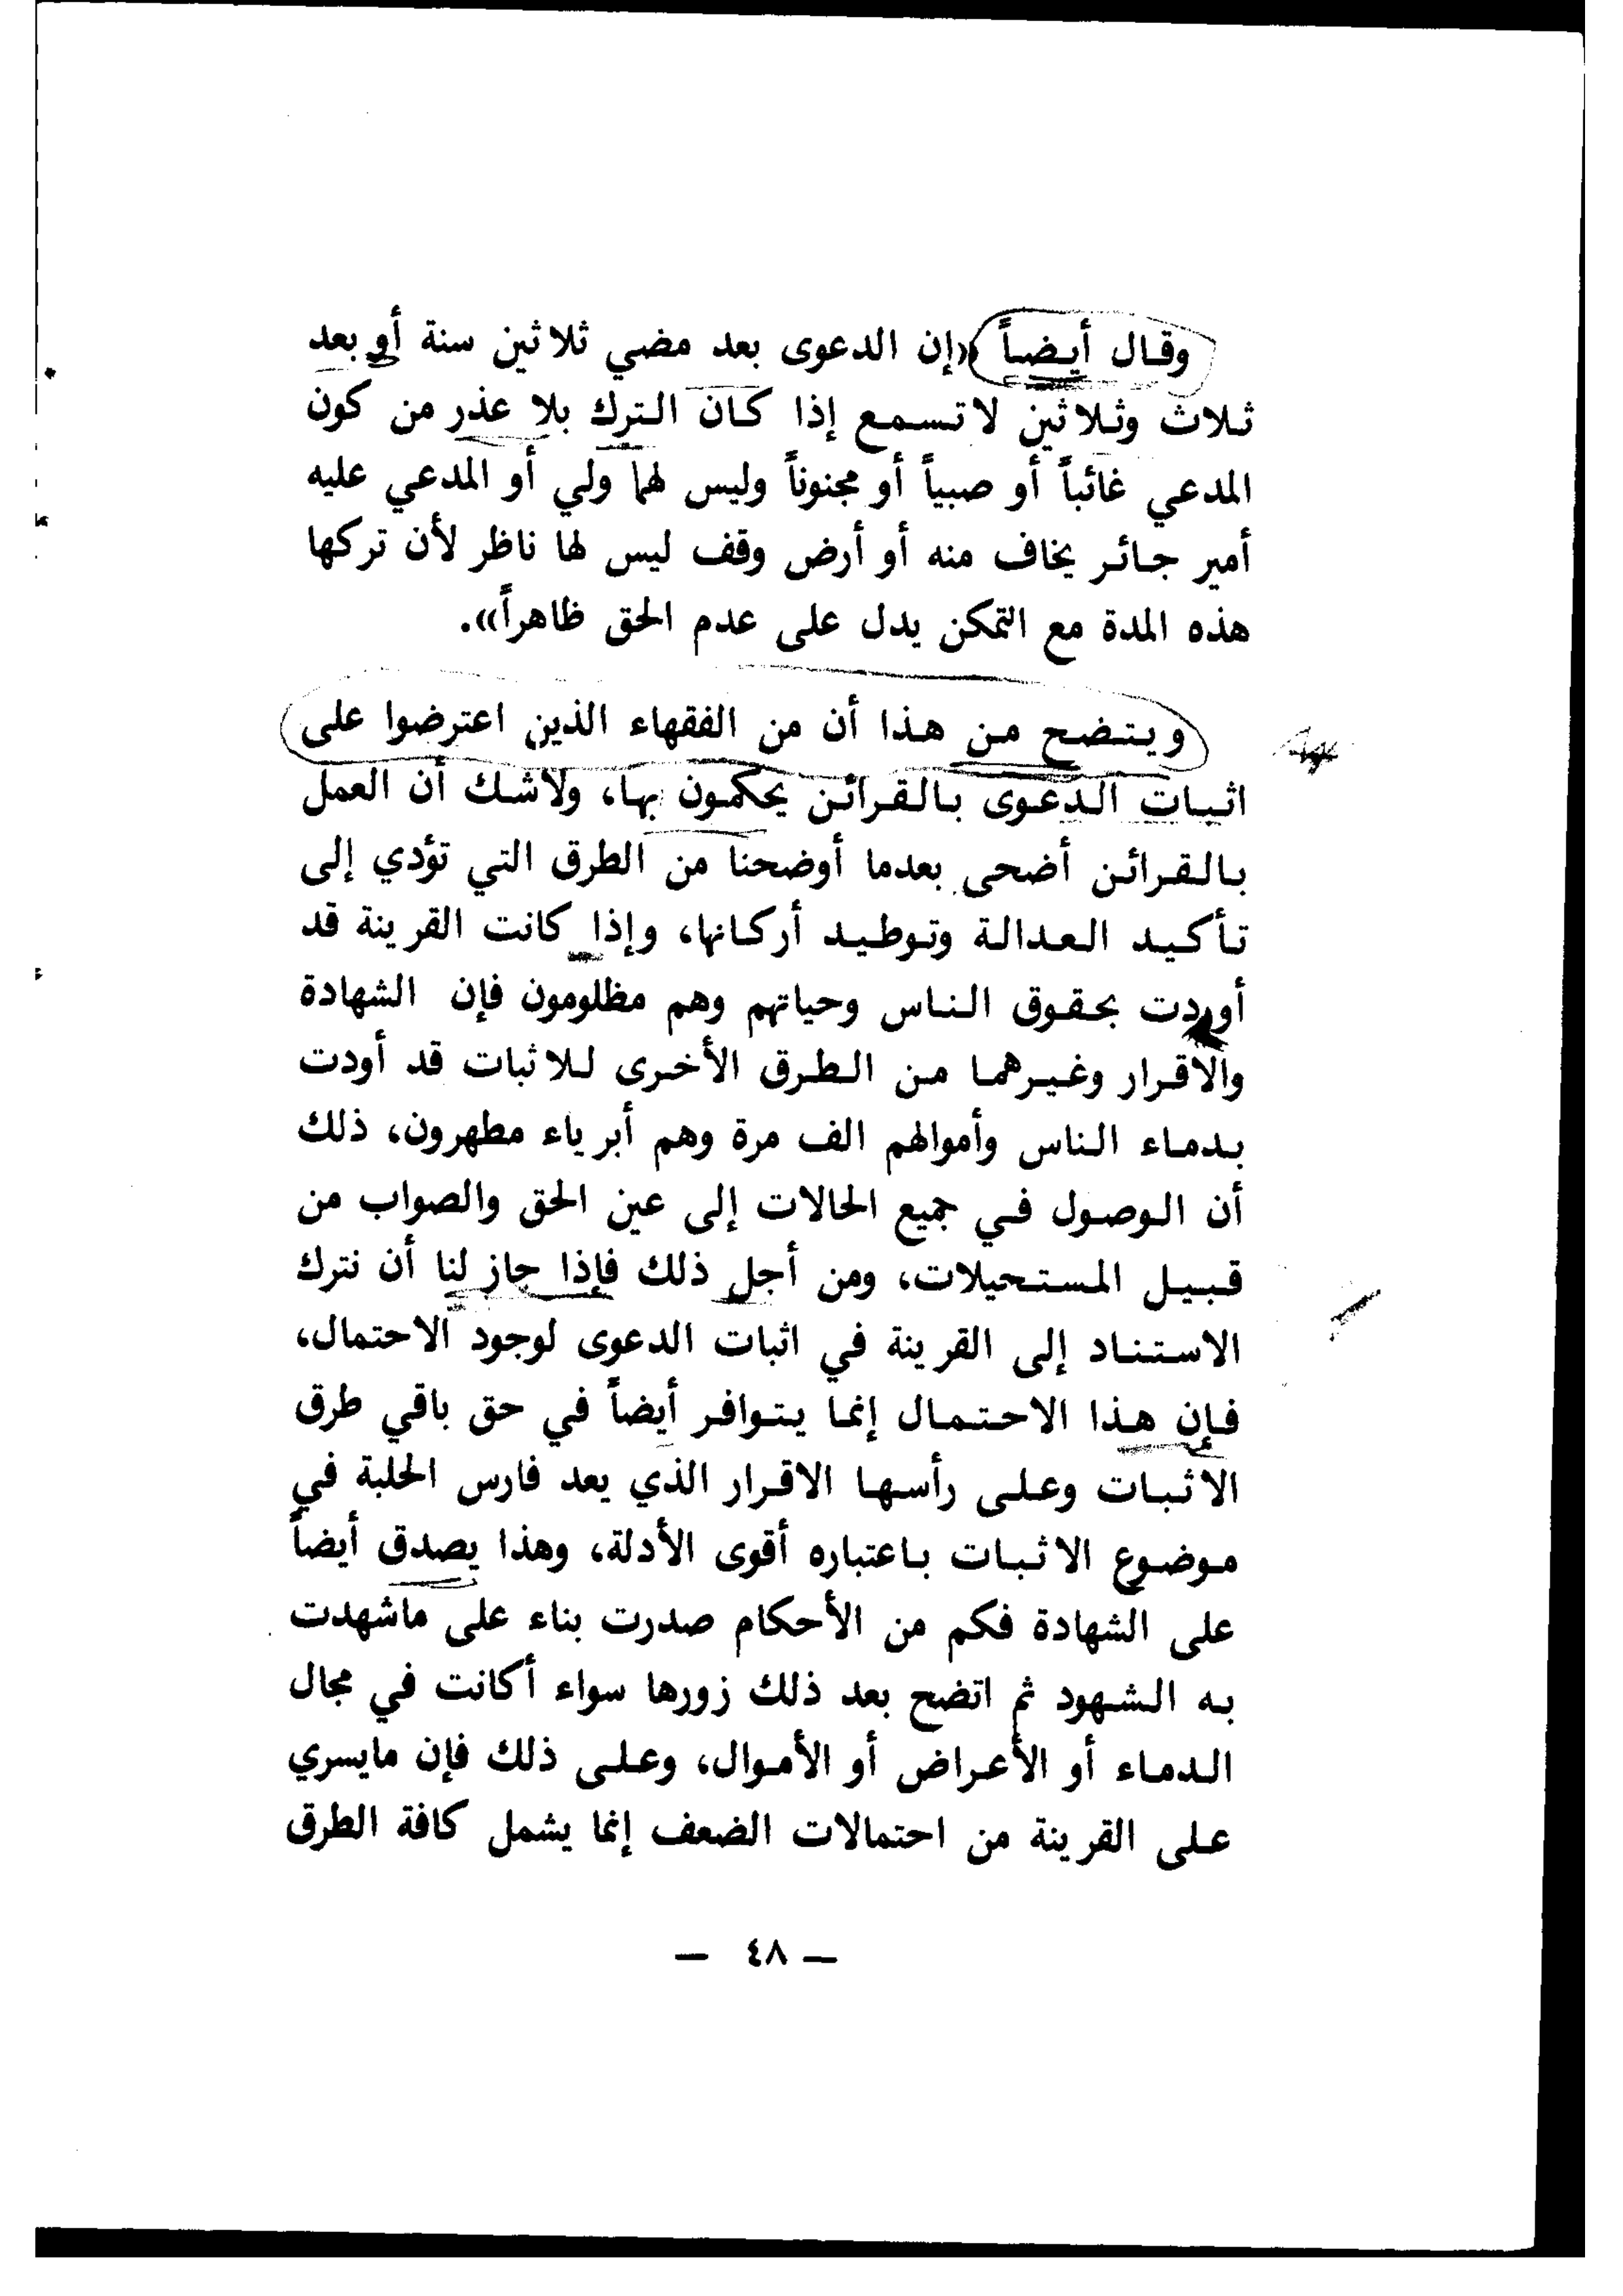 وقال أيضاً «إن الدعوى بعد مضي ثلاثين سنة أو بعد
ثلاث وثلاثين لا تسمع إذا كان الترك بلا عذر من كون
المدعي غائباً أو صبياً أو مجنوناً وليس لهما ولي أو المدعي عليه
أمير جائر يخاف منه أو أرض وقف ليس لها ناظر لأن تركها
هذه المدة مع التمكن يدل على عدم الحق ظاهراً».
ويتضح من هذا أن من الفقهاء الذين اعترضوا على
اثبات الدعوى بالقرائن يحكمون بها، ولاشك أن العمل
بالقرائن أضحى بعدما أوضحنا من الطرق التي تؤدي إلى
تأكيد العدالة وتوطيد أركانها، وإذا كانت القرينة قد
أوردت بحقوق الناس وحياتهم وهم مظلومون فإن الشهادة
والاقرار وغيرهما من الطرق الأخرى للاثبات قد أودت
بدماء الناس وأموالهم الف مرة وهم أبرياء مطهرون، ذلك
أن الوصول في جميع الحالات إلى عين الحق والصواب من
قبيل المستحيلات، ومن أجل ذلك فإذا جاز لنا أن نترك
الاستناد إلى القرينة في اثبات الدعوى لوجود الاحتمال،
فإن هذا الاحتمال إنما يتوافر أيضاً في حق باقي طرق
الاثبات وعلى رأسها الاقرار الذي يعد فارس الحلبة في
موضوع الاثبات باعتباره أقوى الأدلة، وهذا يصدق أيضاً
على الشهادة فكم من الأحكام صدرت بناء على ماشهدت
به الشهود ثم اتضح بعد ذلك زورها سواء أكانت في مجال
الدماء أو الأعراض أو الأموال، وعلى ذلك فإن مايسري
على القرينة من احتمالات الضعف إنما يشمل كافة الطرق
— ٤٨ —